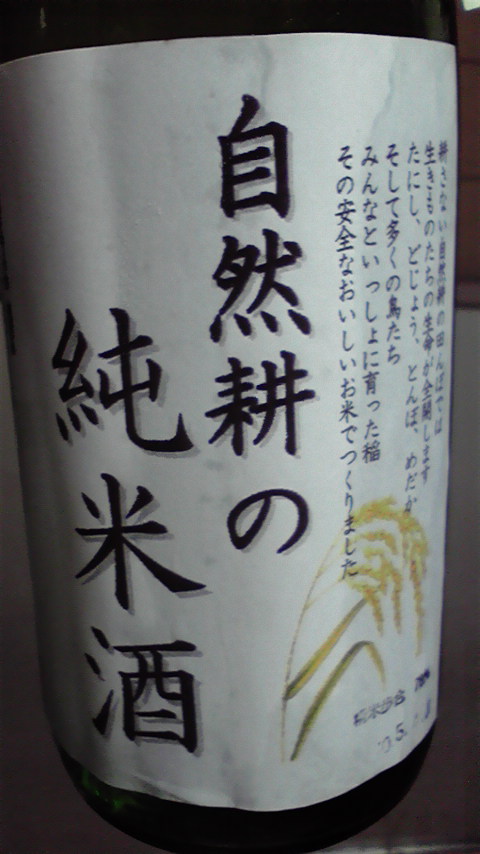 耕さない自然耕の田んぼでは
生きものたちの生命が全開します
たにし、どじょう、とんぼ、めだか
そして多くの鳥たち
みんなといっしょに育った稲
その安全なおいしいお米でつくりました
自然耕の
純米酒
精米歩合